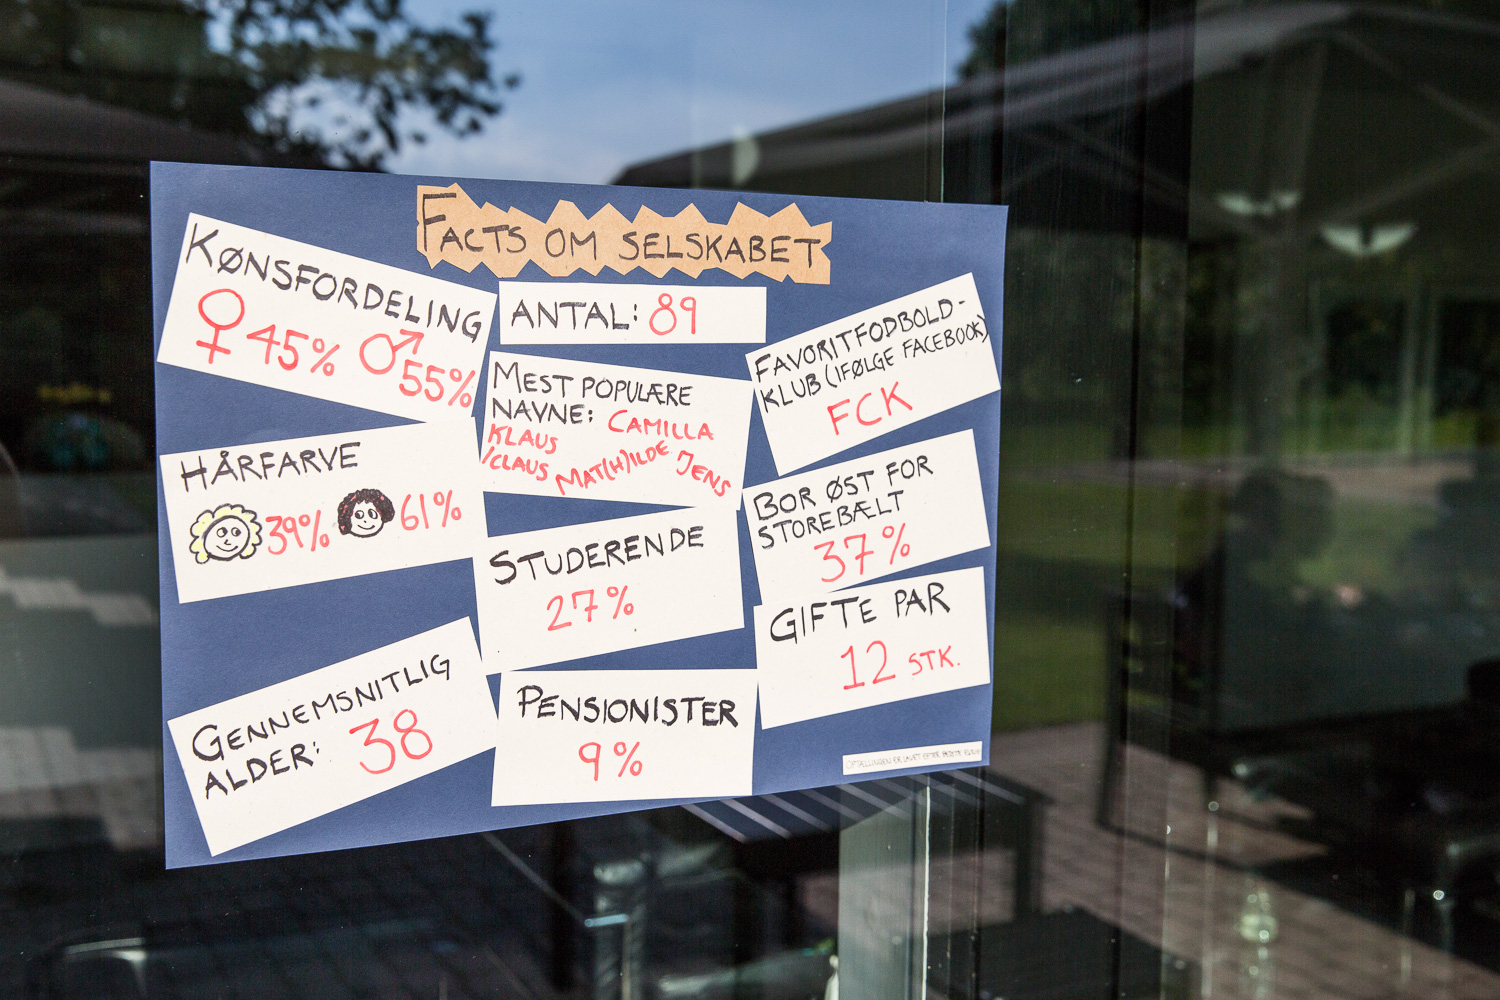 FACTS OM SELSKABET
KØNSFORDELING
♀ 45% ♂ 55%
ANTAL: 89
FAVORITFODBOLD-
KLUB (IFØLGE FACEBOOK)
FCK
MEST POPULÆRE
NAVNE: CAMILLA
KLAUS
/CLAUS MAT(H)ILDE JENS
HÅRFARVE
39% 61%
BOR ØST FOR
STOREBÆLT
37%
STUDERENDE
27%
GIFTE PAR
12 STK.
GENNEMSNITLIG
ALDER: 38
PENSIONISTER
9%
OPTÆLLINGEN ER LAVET EFTER